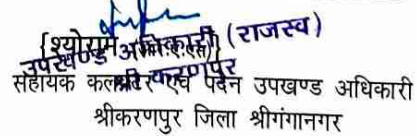 {श्योराम
उपखण्ड अधिकारी (राजस्व)
श्री करणपुर
सहायक कलक्टर एवं पदेन उपखण्ड अधिकारी
श्रीकरणपुर जिला श्रीगंगानगर